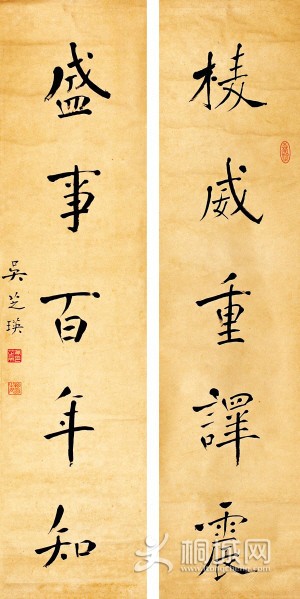 棱威重譯震
盛事百年知
吳芝瑛
桐城网